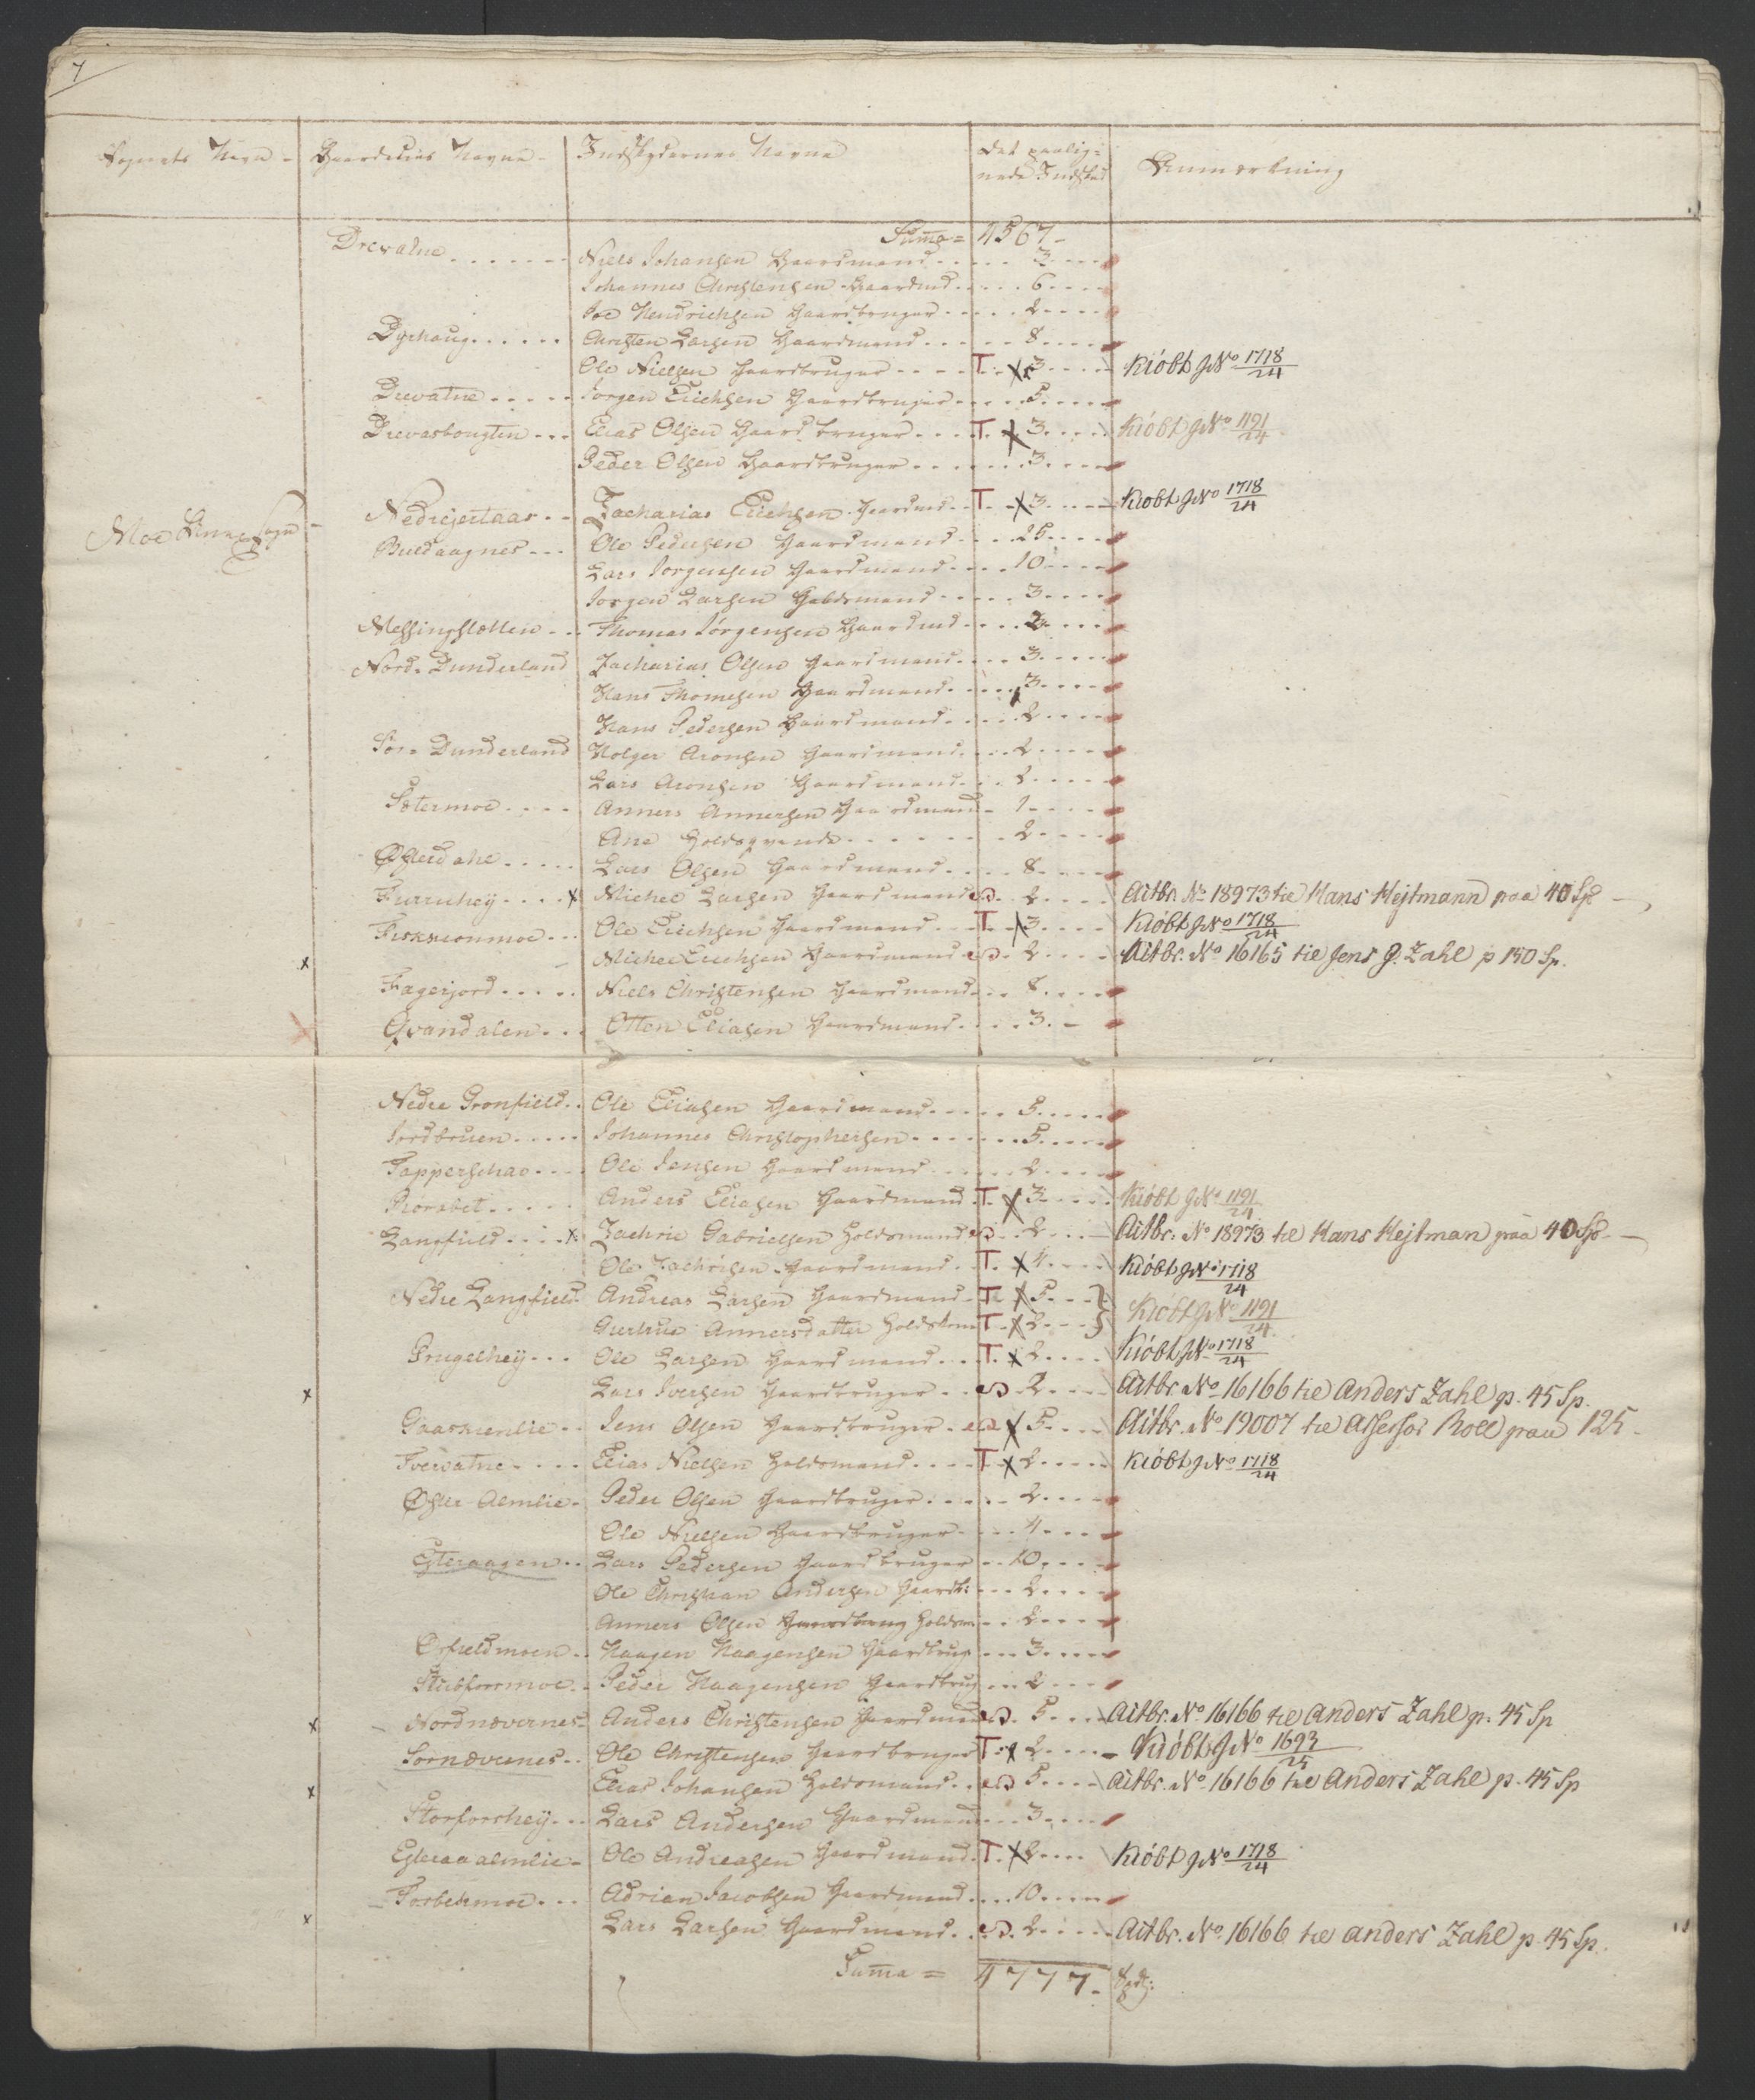 7
Sognets Navn - Gaardenes Navne - Indskydernes Navne det paalig= Anmerkning
nede Indskud
Summa = 4567 -
Drevatne Niels Johansen Gaardmand 3
Johannes Christensen Gaardmd 6
Joe Hendrichsen Gaardbruger 2
Dyrhaug Christen Larsen Gaardmand 8
Ole Nielsen Gaardbruger T. x 3 Kiöbt J No 1718/24
Drevatne Jorgen Erichsen Gaardbruger 5
Drevasbougten Elias Olsen Gaardbruger T. x 3 Kiöbt J No 1191/24
Peder Olsen Gaardbruger 3
Moe Sogn Nedrejertaas Zacharias Erichsen Gaardmd T x 3 Kiöbt J No 1718/24
Buldaagnes Ole Pedersen Gaardmand 25
Lars Jorgensen Gaardmand 10
Jorgen Larsen Holdsmand 3
Messingslotten Thomas Jörgensen Gaardmd 2
Nord= Dunderland Zacharias Olsen Gaardmand 3
Hans Thomesen Gaardmand 3
Hans Pedersen Gaardmand 2
Sör= Dunderland Holger Aronsen Gaardmand 2
Lars Aronsen Gaardmand 2
Sætermoe Anners Annersen Gaardmand 1
Ane Holdsqvinde 2
Østerdahl Lars Olsen Gaardmand 8
Furruhey x Michel Larsen Gaardmand 2 Aitbr. No 18973 til Hans Hejtmann paa 40 Sp
Fiskeronmoe Ole Erichsen Gaardmand T x 3 Kiöbt J No 1718/24
x Michel Erichsen Gaardmand 2 Aitbr. No 16165 til Jens J. Zahl p 150 Sp.
Fagerjord Niels Christensen Gaardmand 8
Qvandalen Otten Eliasen Gaardmand 3
Nedre Gronfield Ole Eliasen Gaardmand 5
Jordbruen Johannes Christophersen 5
Tapperskar Ole Jensen Gaardmand 2
Rorabet Anders Eliasen Gaardmand T. x 3 Kiöbt J No 1191/24
Langfield x Zachrie Gabrielsen Holdsmand 2 Aitbr. No 18973 til Hans Hejtman paa 40 Sp
Ole Zachrisen Gaardmand T. x 4 Kiöbt J No 1718/24
Nedre Langfield Andreas Larsen Gaardmand T x 5 }
Giertrue Annersdatter Holdskone T. x 2 } Kiöbt J No 1191/24
Prugelhey Ole Larsen Gaardmand T. x 2 Kiöbt J No 1718/24
x Lars Iversen Gaardbruger 2 Aitbr. No 16166 til Anders Zahl p. 45 Sp.
Gaaskienlie Jens Olsen Gaardbruger x 5 Aitbr. No 19007 til Assessor Roll paa 125 -
Tvervatne Elias Nielsen Holdsmand T x 2 Kiöbt J No 1718/24
Øfre Almlie Peder Olsen Gaardbruger 2
Ole Nielsen Gaardbruger 4
Yteraagen Lars Pedersen Gaardbruger 10
Ole Christian Andersen Gaardb: 2
Anners Olsen Gaardbrug Holdsm 2
Ørfieldmoen Haagen Haagensen Gaardbrug 3
Stubforsmoe Peder Haagensen Gaardbrug 2
x Nordnævernes Anders Christensen Gaardmand 5 Aitbr. No 16166 til Anders Zahl p. 45 Sp
Sörnævernes Ole Christensen Gaardbruger T x 2 Kiöbt J No 1693/25
x Elias Johansen Holdsmand 5 Aitbr. No 16166 til Anders Zahl p. 45 Sp
Storforshey Lars Andersen Gaardmand 3
Ytteraa almlie Ole Andreasen Gaardmand T. x 2 Kiöbt J No 1718/24
Torbekmoe Adrian Jacobsen Gaardmand 10
x Lars Larsen Gaardmand 2 Aitbr. No 16166 til Anders Zahl p. 45 Sp.
Summa = 4777 - Spd: